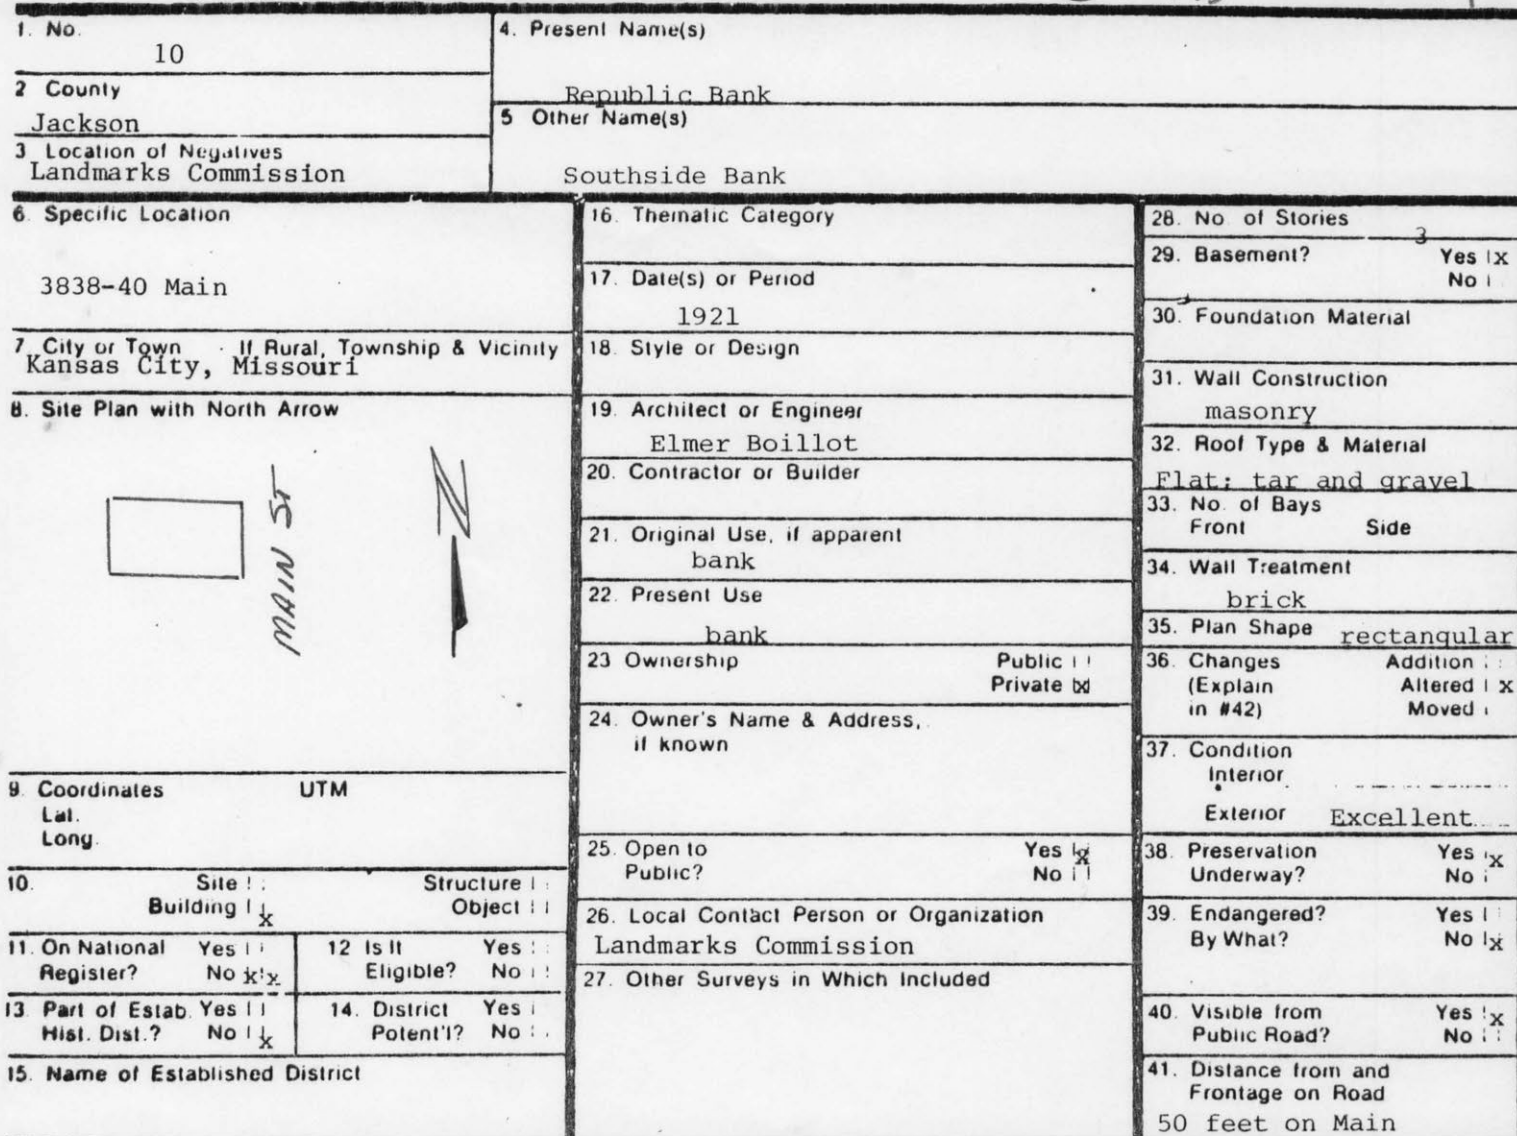 1. No.
10
2 County
Jackson
3 Location of Negatives
Landmarks Commission
4. Present Name(s)
Republic Bank
5 Other Name(s)
Southside Bank
6. Specific Location
3838-40 Main
7. City or Town If Rural, Township & Vicinity
Kansas City, Missouri
8. Site Plan with North Arrow
MAIN ST
N
9. Coordinates UTM
Lat.
Long.
10. Site Structure
Building x Object
11. On National Yes
Register? No x x
12 Is It Yes
Eligible? No
13. Part of Estab. Yes
Hist. Dist.? No x
14. District Yes
Potent'l? No
15. Name of Established District
16. Thematic Category
17. Date(s) or Period
1921
18. Style or Design
19. Architect or Engineer
Elmer Boillot
20. Contractor or Builder
21. Original Use, if apparent
bank
22. Present Use
bank
23 Ownership Public
Private x
24. Owner's Name & Address,
if known
25. Open to Yes x
Public? No
26. Local Contact Person or Organization
Landmarks Commission
27. Other Surveys in Which Included
28. No. of Stories
3
29. Basement? Yes x
No
30. Foundation Material
31. Wall Construction
masonry
32. Roof Type & Material
Flat; tar and gravel
33. No. of Bays
Front Side
34. Wall Treatment
brick
35. Plan Shape rectangular
36. Changes Addition
(Explain Altered x
in #42) Moved
37. Condition
Interior
Exterior Excellent
38. Preservation Yes x
Underway? No
39. Endangered? Yes
By What? No x
40. Visible from Yes x
Public Road? No
41. Distance from and
Frontage on Road
50 feet on Main